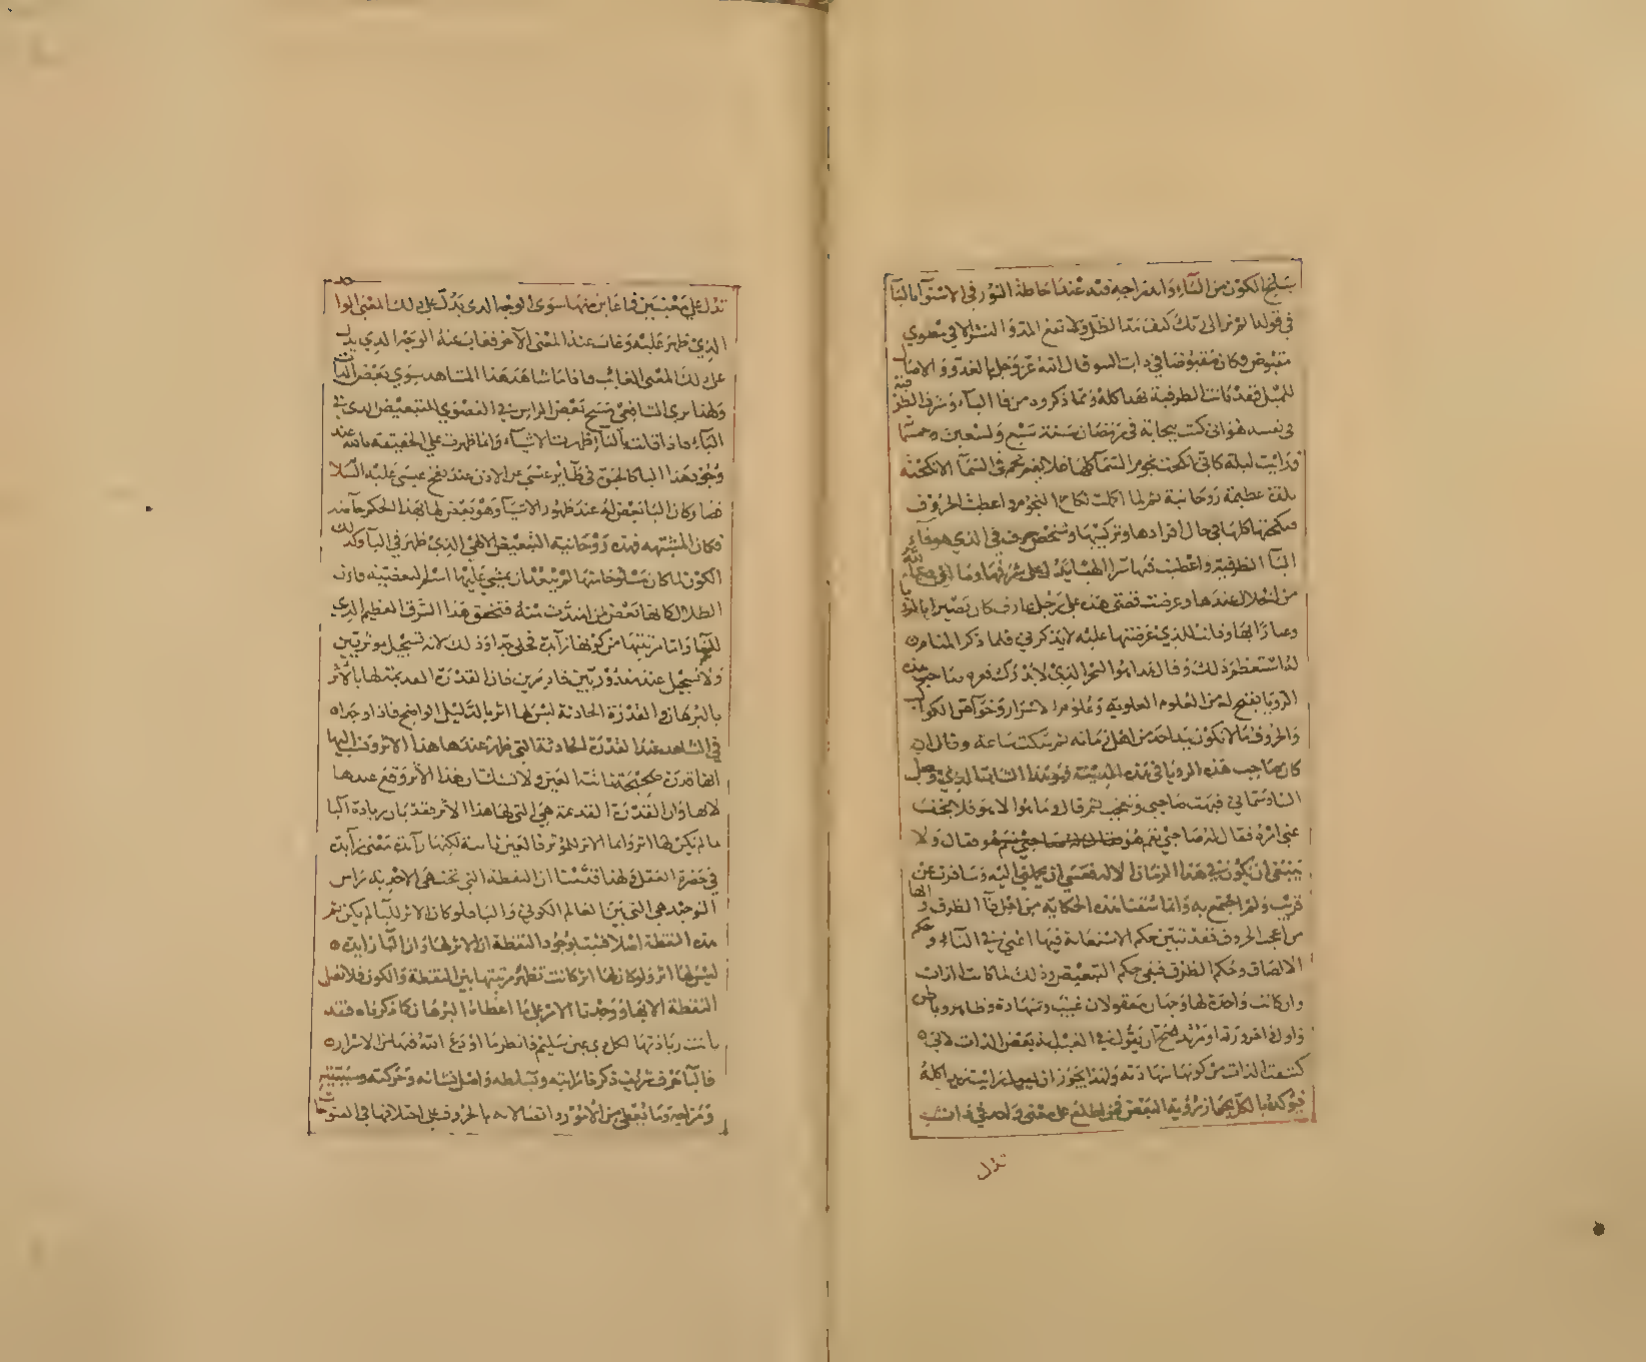 بسلخ الكون من الباء واندراجه فيه عند احاطة النور في الاستوا بالباء
في قوله الم تر الى ربك كيف مد الظل ولا تعم المد والنشر الا في مطوي
مقبوض وكان مقبوضا في ذات السوقال الله عز وجل بالغدو والاصال
للميل فقد بانت الظرفية بهذا كله ومما ذكروه من فا الباء وشرف الظرفية
في نفسه هو اني كنت ببجاية في رمضان سنة سبع وتسعين وخمسمائة
فرايت ليلة كاني انكحت نجوم السماء كلها فلا بقي نجم في السماء الا نكحته
بلذة عظيمة روحانية ثم لما اكملت نكاح النجوم واعطيت الحروف
فنكحتها كلها في حال افرادها وتركيبها وشخص لي حرف في الذي هو فا
الباء الظرفية واعطيت فيها سرا الهيا يدل على شرفها وما اودع الله
من الجلال عندها وعرضت قصتي هذه على رجل عارف كان بصيرا بالرؤيا
وعبارتها وقلت للذي عرضتها عليه لا يذكرني فلما ذكر المنام
له استعظم ذلك وقال هذا هو البحر الذي لا يدرك قعره صاحب هذه
الرؤيا يفتح له من العلوم العلوية وعلوم الاسرار وخواص الكواكب
والحروف ما لا يكون بيد احد من اهل زمانه ثم سكت ساعة وقال ان
كان صاحب هذه الرؤيا في هذه المدينة فهو هذا الشاب الذي وصل
اليها وسماني فبهت صاحبي وتعجب ثم قال وما هو الا هو فلا تخف
عني امره فقال له صاحبي نعم هو فقال له صاحبي نعم هو فقال ولا
ينبغي ان يكون في هذا الزمان الا له فعسى ان تحملني اليه وسافرت عن
قريب ولم اجتمع به وانما سقنا هذه الحكاية من اجل فا الظرف وانها
من اعجب الحروف فقد تبين حكم الاستعانة فيها اعني في الباء وحكم
الالصاق وحكم الظرف فبقي حكم التبعيض وذلك لما كانت الذات
وان كانت واحدة لها وجهان معقولان غيب وشهادة وظاهر وباطن
واول واخر ورداء ومرتد صح ان يقول في الغيب انه بعض الذات لاني
كشفت الذات من كونها شهادته ولذا يجوز ان يقول رايت زيدا كله
فيؤكده بالكل لجواز رؤية البعض فهو يطلع على معنى واحد في ذات
تدل
تدل على معنيين فما غاب منها سوى الوجه الذي يدل على ذلك المعنى
الذي ظهر عليه وغاب عنه المعنى الآخر فغاب عنه الوجه الذي يدل
على ذلك المعنى الغائب فاذا ما شاهد هذا المشاهد سوى بعض الذات
ولهذا يرى الشافعي مسح بعض الراس في الوضوء للتبعيض الذي في
الباء فاذا قلت بالباء ظهرت الاشياء وانما ظهرت على الحقيقة بالله عند
وجود هذا الباء كالحق في طائر عيسى عن الاذن عند نفخ عيسى عليه السلام
فصار وكان البا بعض له عند ظهور الاشياء وهو بعض لها بهذا الحكم جامد
فكان المشبه فهذه روحانية التبعيض الالهي الذي ظهر في الباء وكذلك
الكون لما كان مسلوخا منها لم يبعد ان يمشي عليها اسم البعضية فان
الظلال كانها بعض لمن امتدت منه فتحقق هذا الشرف العظيم الذي
للباء واما مرتبتها من كونها زايدة فجلي جدا وذلك لانه تستحيل مؤثرين
ولا تستحيل عنه مقدورين حادثين فان القدرة القديمة لها الاثر
بالبرهان والقدرة الحادثة ليس لها اثر بالدليل الواضح فاذا وجدناه
في الشاهد عند القدرة الحادثة التي ظهر عندها هذا الاثر ونسب اليها
انها قدرة صحيحة ثابتة العين ولا نشك ان هذا الاثر وقع عندها
لا بها وان القدرة القديمة هي التي لها هذا الاثر فقد بان زيادة البا
ما لم يكن لها اثر وانما الاثر للمؤثر فالعين ثابتة لكنها زايدة معنى زايدة
في حضرة الفعل ولهذا قدمنا ان النقطة التي تحت هي الاحدية راس
التوحيد هي التي بين العالم الكوني والبا فلو كان الاثر للباء لم يكن ثم
هذه النقطة اصلا فثبت بوجود النقطة ان الاثر لها وان الباء زايدة
ليس لها اثر ولو كان لها اثر كانت تظهر مرتبتها بين النقطة والكون فلا تفعل
النقطة الا بها ووجدنا الامر على ما اعطاه البرهان كما ذكرناه فقد
بانت زيادتها لكل ذي عين سليم فانظر ما اودع الله فيها من الاسرار
فالباء حرف شريف ذكرنا مراتبه وبسايطه واصل نشأته وحركته وسببيته
ومزاجه وما بقي من الامور واتصالاته بالحروف على اختلافها في الفتوحات